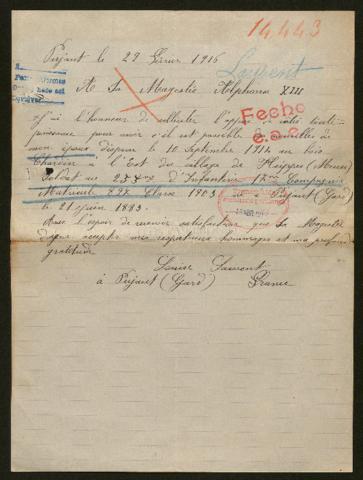 14.443
Pujaut le 29 Février 1916
Laurent
A Sa Majestée Alphonse XIII
J'ai l'honneur de solliciter l'appui de votre toute
puissance pour avoir s'il est possible de nouvelles de
mon époux disparu le 10 Septembre 1914 au bois
Chardin à l'Est du village de (Meuse)
Soldat au 258me d'Infanterie 17me Compagnie
Matricule Classe 1903 Pujaut (Gard)
le 21 Juin 1883.
Avec l'espoir de recevoir satisfaction que Sa Majestée
daigne accepter mes respectueux hommages et ma profonde
gratitude
Louise Laurent
à Pujaut (Gard) France
Fecho